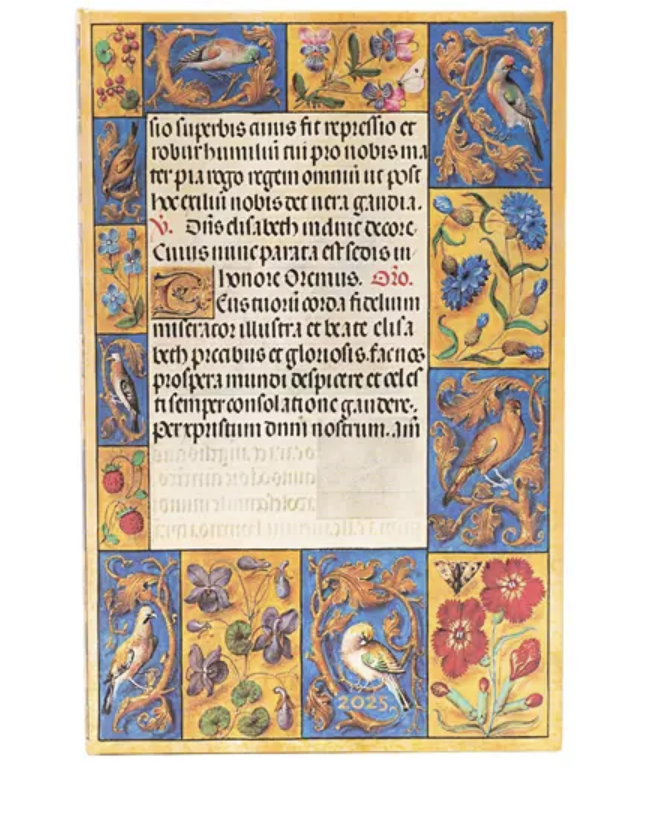 sio superbis cuius fit repressio et
robur humiliū tui pro nobis ma
ter pia rogo regem omniū ut post
hoc exiliū nobis det uera gaudia.
V. Dn̄s elisabeth induit decore.
Cuius nunc parata est sedis in
honore Oremus. Or̄o.
Eus tuorū corda fidelium
miserator illustra et beate elisa
beth precibus et gloriosis fac nos
prospera mundi despicere et celes
ti semper consolatione gaudere.
Per xpristum dnm̄ nostrum. am̄
2025